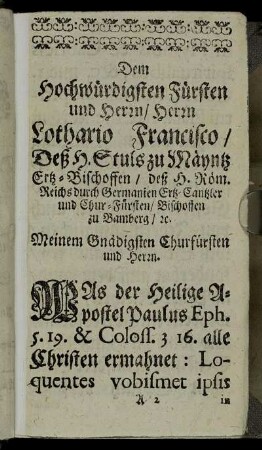 Dem
Hochwürdigsten Fürsten
und Herrn/ Herrn
Lothario Francisco/
Deß H. Stuls zu Mäyntz
Ertz-Bischoffen/ deß H. Röm.
Reichs durch Germanien Ertz-Cantzler
und Chur-Fürsten/ Bischoffen
zu Bamberg/ ꝛc.
Meinem Gnädigsten Churfürsten
und Herrn.
WAs der Heilige A-
postel Paulus Eph.
5. 19. & Coloss. 3 16. alle
Christen ermahnet: Lo-
quentes vobismet ipsis
A 2 in